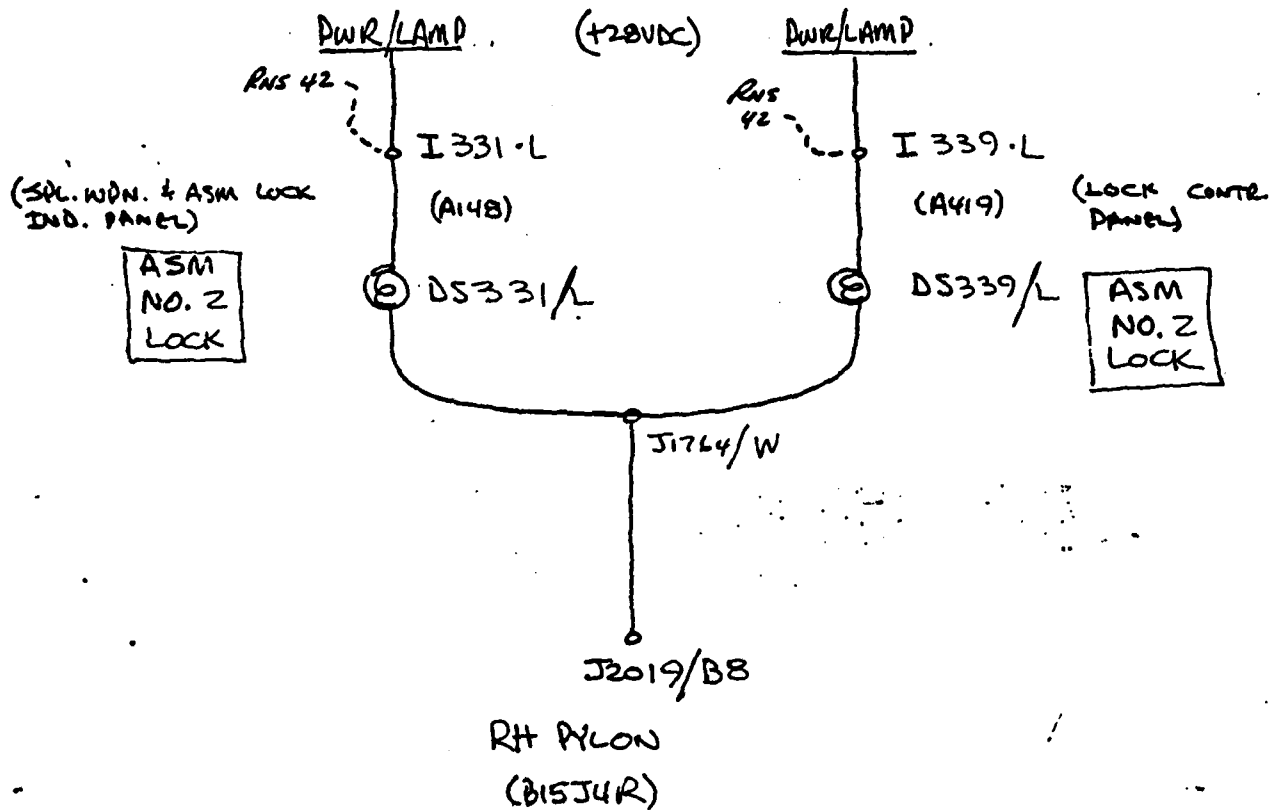 PWR/LAMP (+28VDC) PWR/LAMP
RNS 42
RNS
42
I 331·L
I 339·L
(SPL. WPN. & ASM LOCK
IND. PANEL)
(A148)
(A419)
(LOCK CONTR.
PANEL)
ASM
NO. 2
LOCK
DS331/L
DS339/L
ASM
NO. 2
LOCK
J1764/W
J2019/B8
RH PYLON
(B15J4R)